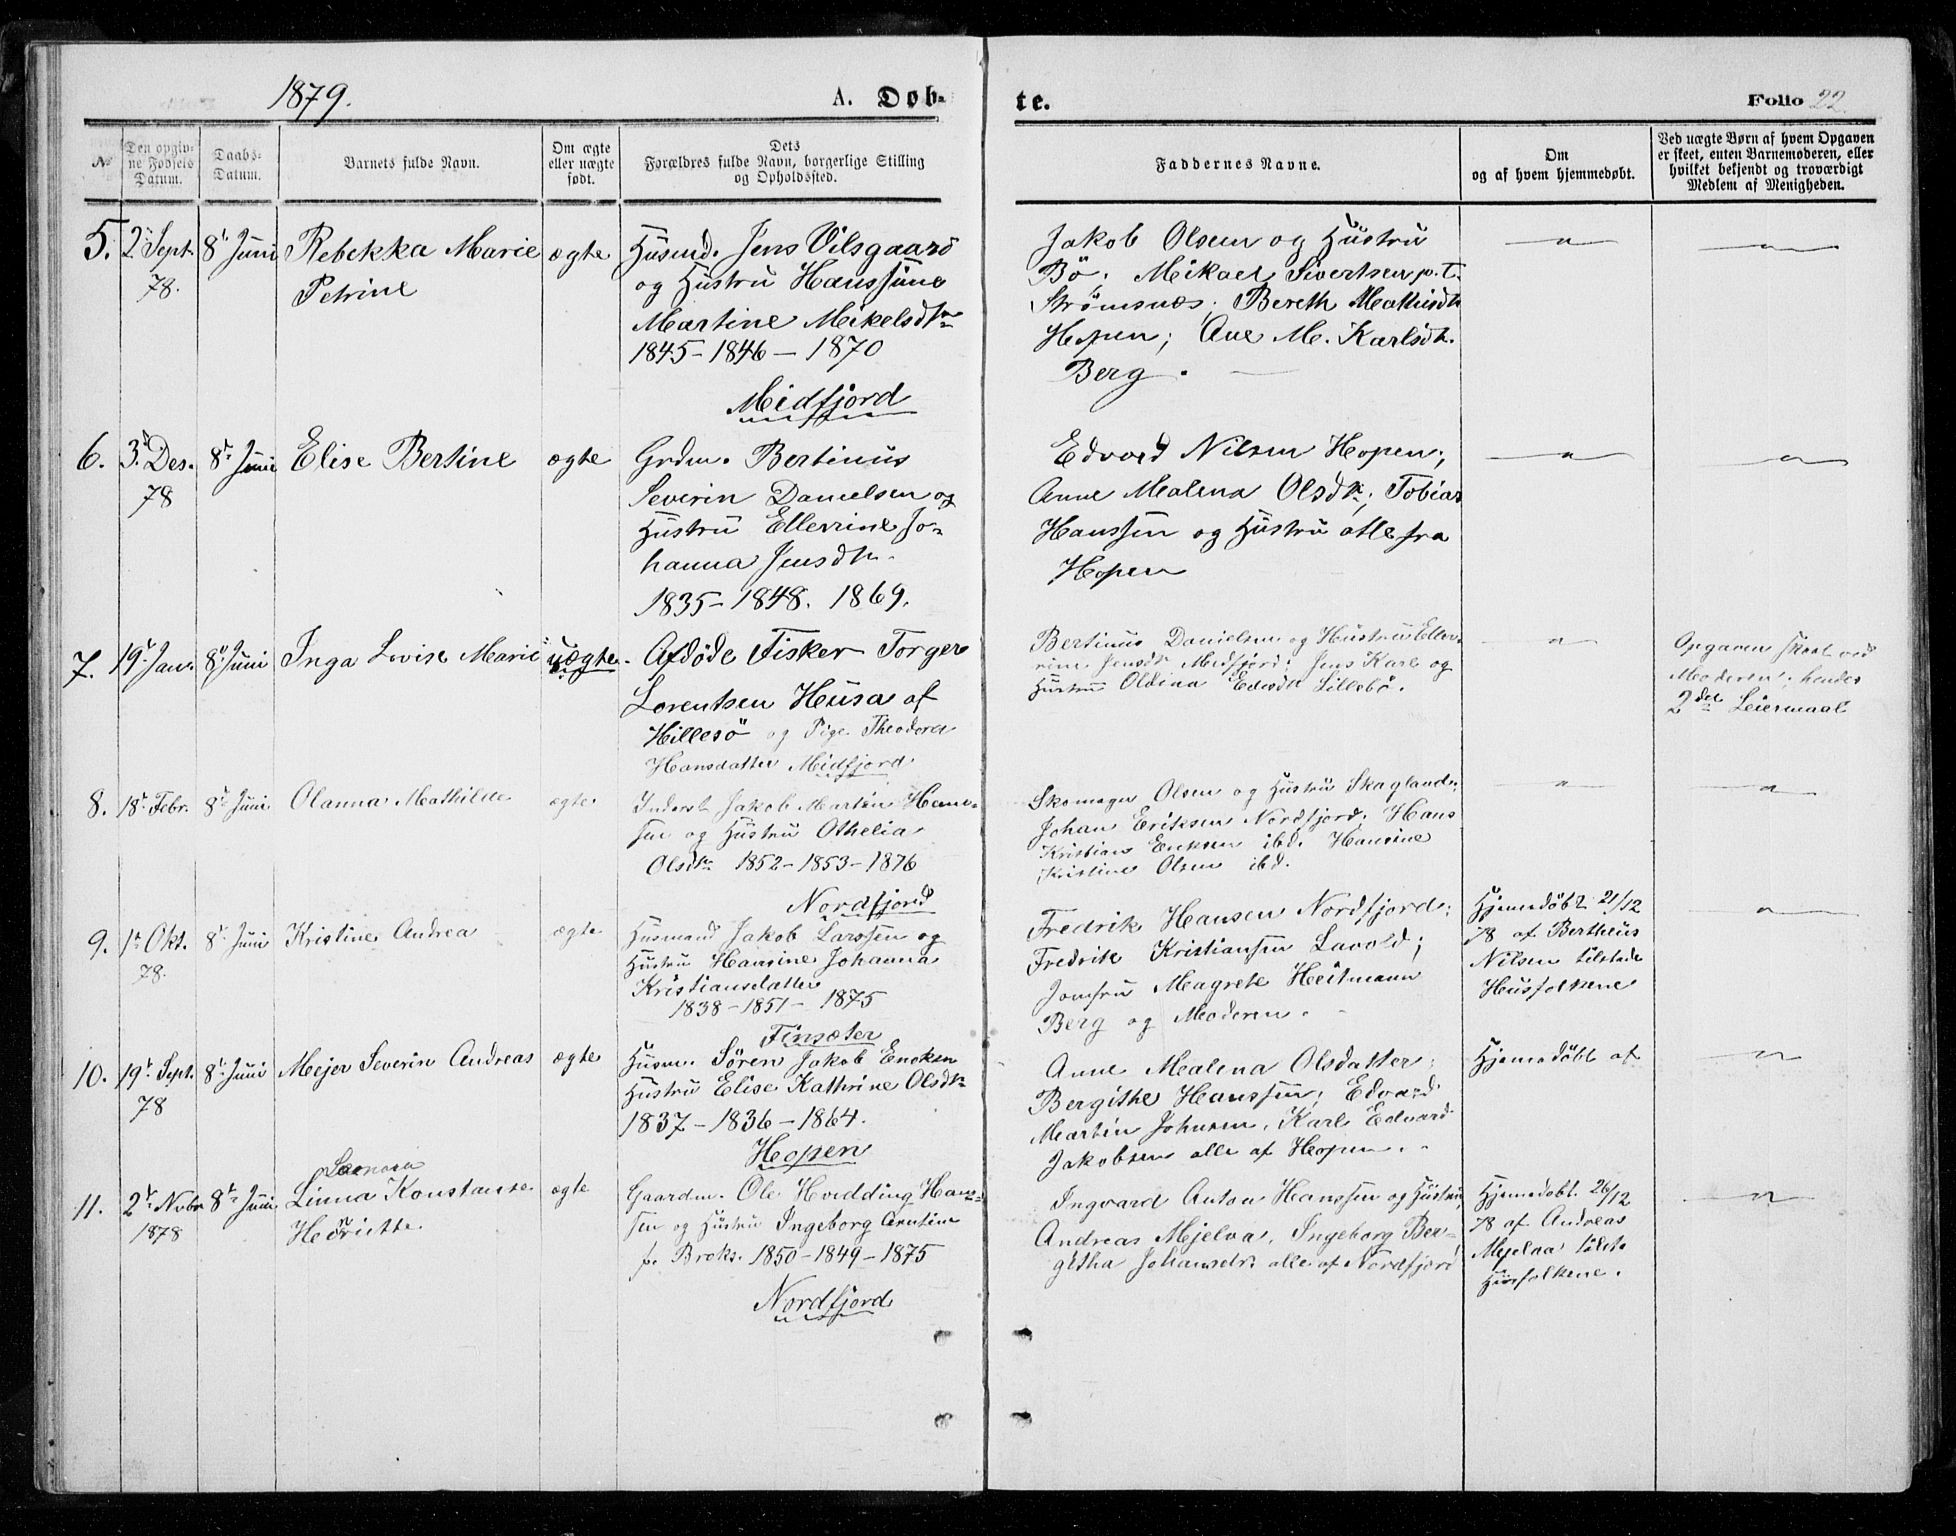 1879.
A. Døb-
te.
Folio 22.
№
Den opgiv-
ne Fødsels
Datum.
Daabs-
Datum.
Barnets fulde Navn.
Om ægte
eller uægte
født.
Dets
Forældres fulde Navn, borgerlige Stilling
og Opholdssted.
Faddernes Navne.
Om
og af hvem hjemmedøbt.
Ved uægte Børn af hvem Opgaven
er skeet, enten Barnemoderen, eller
hvilket bekjendt og troværdigt
Medlem af Menigheden.
5.
2 Sept.
78.
8 Juni
Rebekka Marie
Petrine
ægte
Husmd. Jens Vilsgaard
og Hustru Hanssine
Martine Mikelsdtr
1845-1846-1870
Midfjord
Jakob Olsen og Hustru
Bö. Mikael Sivertsen p.t.
Strömsnæs; Bereth Mathisdtr
Hopen; Ane M. Karlsdtr.
Berg.
6.
3. Des.
78
8 Juni
Elise Bertine
ægte
Grdm. Bertinus
Severin Danielsen og
Hustru Ellevine Jo-
hanna Jensdtr.
1835-1848. 1869.
Edvard Nilsen Hopen;
Anne Malena Olsdtr; Tobias
Hanssen og Hustru alle fra
Hopen
7.
19 Jan.
8 Juni
Inga Lovise Marie
uægte.
Afdöde Fisker Torger
Lorentsen Husa af
Hillesö og Pige Theodora
Hansdatter Midfjord
Bertinus Danielsen og Hustru Elle-
vine Jensdtr Midfjord; Jens Karl og
Hustru Oldina Lillebö.
Opgaven skeet ved
Moderen; hendes
2det Leiermaal
8.
18 Febr.
8 Juni
Olanna Mathilde
ægte
Inderst Jakob Martin Hans-
sen og Hustru Othelia
Olsdtr 1852-1853-1876
Nordfjord
Skomager Olsen og Hustru Skagland;
Johan Eriksen Nordfjord; Hans
Kristian Eriksen ibd. Hansine
Kristine Olsen ibd.
9.
1 Okt.
78.
8 Juni
Kristine Andrea
ægte
Husmand Jakob Larssen og
Hustru Hansine Johanna
Kristiansdatter
1838-1851-1875
Finsæter
Fredrik Hansen Nordfjord;
Fredrik Kristiansen Lavold;
Jomfru Magrete Heitmann
Berg og Moderen.
Hjemedöbt 21/12
78 af Bertheus
Nilsen tilstede
Husfolkene
10.
19 Sept.
78
8 Juni
Mejer Severin Andreas
ægte
Husm. Sören Jakob Enoksen
Hustru Elise Kathrine Olsdtr
1837-1836-1864.
Hopen
Anne Malena Olsdatter;
Bergithe Hanssen; Edvard
Martin Johnsen. Karl Edvard
Jakobsen alle af Hopen.
Hjemedöbt af
11.
2 Nvbr
1878
8 Juni
Linna Konstanse
Henriette
ægte
Gaardm. Ole Hvidding Hans-
sen og Hustru Ingeborg Arntine
f. Broks. 1850-1849-1875
Nordfjord
Ingvard Anton Hanssen og Hustru;
Andreas Mjelva, Ingeborg Ber-
githa Johansdtr. alle af Nordfjord
Hjemedöbt 26/12
78 af Andreas
Mjelva tilste
Husfolkene.